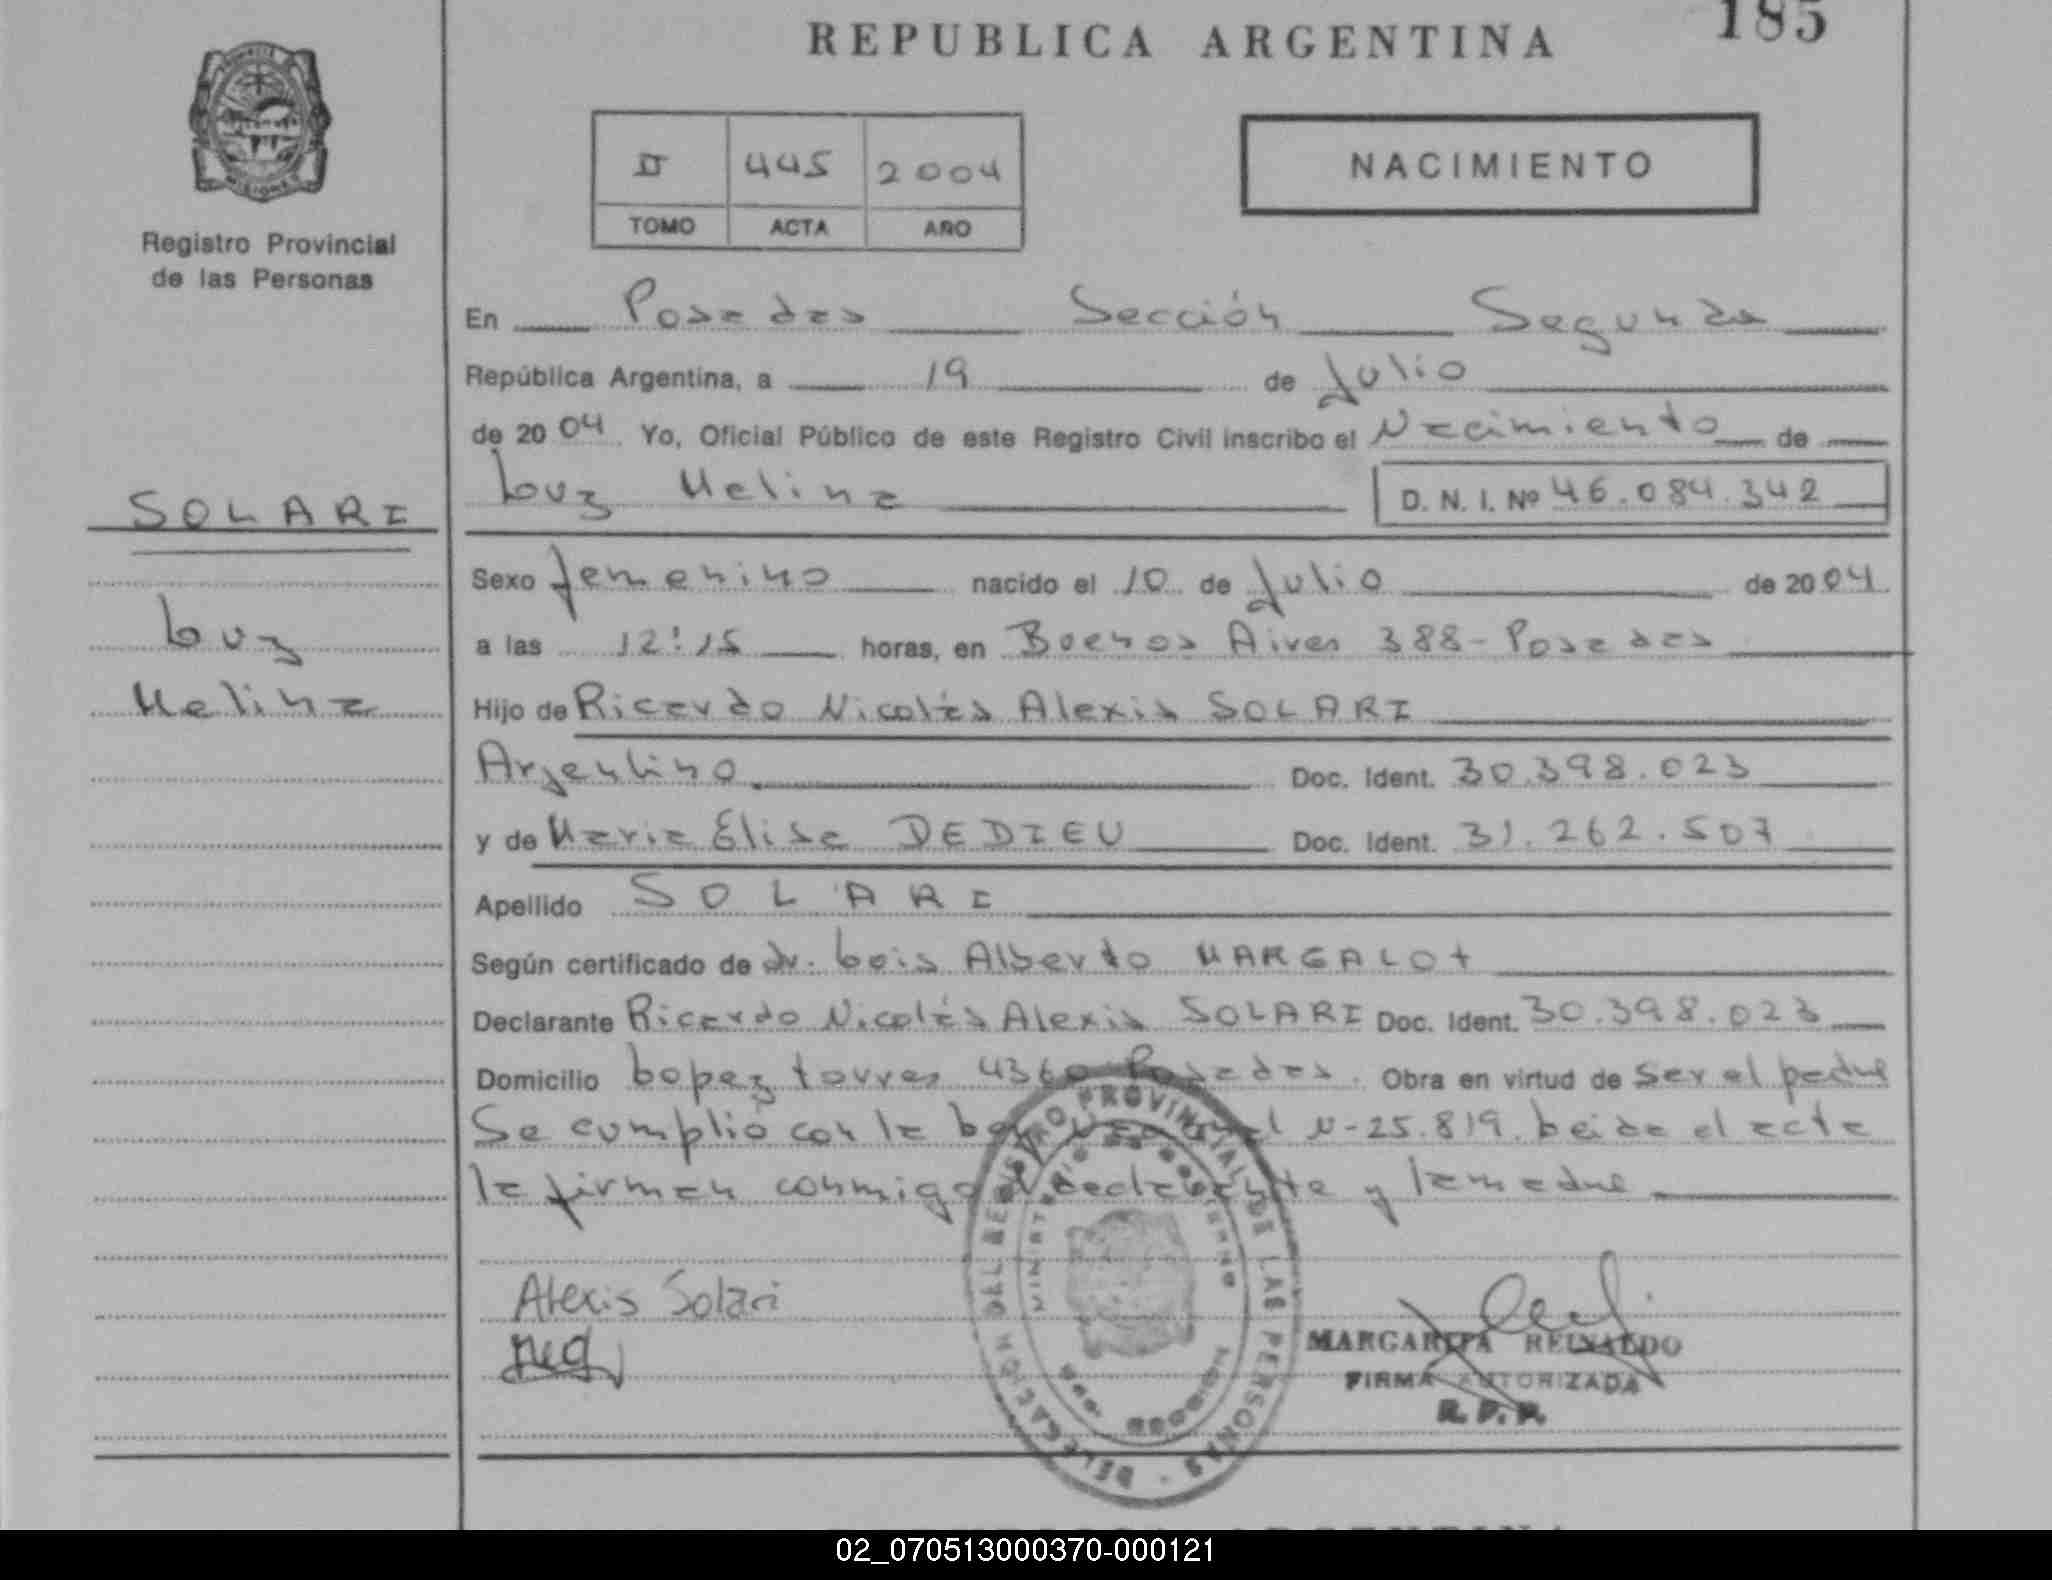 REPUBLICA ARGENTINA
185
Registro Provincial
de las Personas
II 445 2004
TOMO ACTA AÑO
NACIMIENTO
En Posadas Sección Segunda
República Argentina, a 19 de Julio
de 2004 Yo, Oficial Público de este Registro Civil inscribo el Nacimiento de
Luz Melina D. N. I. Nº 46.084.342
SOLARI
Luz
Melina
Sexo femenino nacido el 10 de Julio de 2004
a las 12:15 horas, en Buenos Aires 388-Posadas
Hijo de Ricardo Nicolás Alexis SOLARI
Argentino Doc. Ident. 30.398.023
y de Maria Elisa DEDIEU Doc. Ident. 31.262.507
Apellido SOLARI
Según certificado de dr. Luis Alberto MARGALOT
Declarante Ricardo Nicolás Alexis SOLARI Doc. Ident. 30.398.023
Domicilio Lopez torres 4360 Posadas. Obra en virtud de Ser el padre
Se cumplió con la Ley N-25.819. Leida el acta
la firman conmigo el declarante y la madre
Alexis Solari
DELEGACION DEL REGISTRO PROVINCIAL DE LAS PERSONAS
MARGARITA REINALDO
FIRMA AUTORIZADA
R. P. P.
02_070513000370-000121